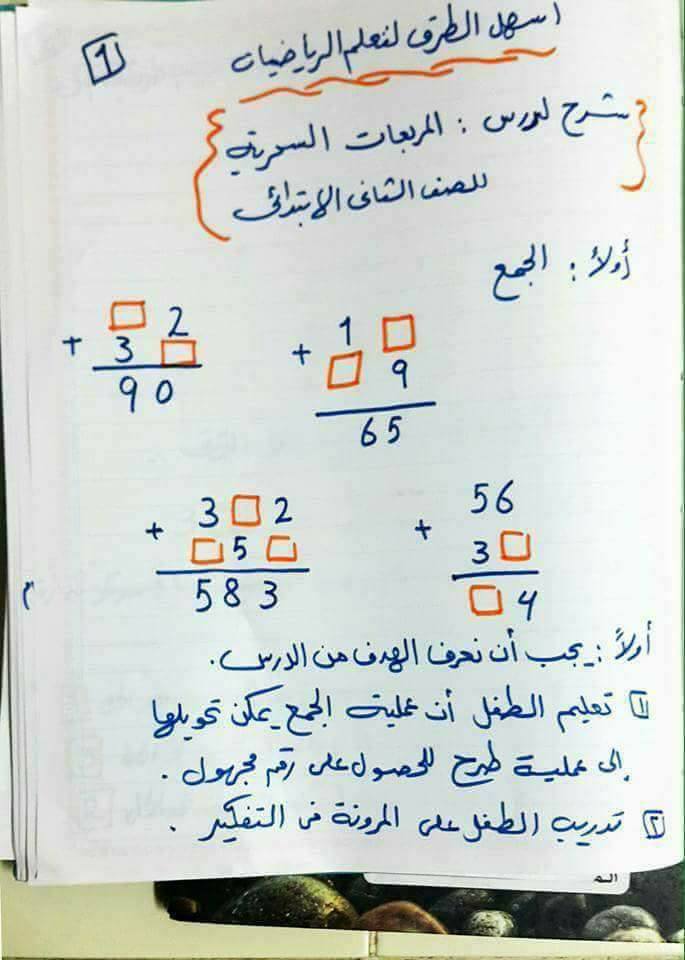 اسهل الطرق لتعلم الرياضيات
1
شرح لدرس : المربعات السحرية
للصف الثانى الابتدائى
أولاً : الجمع
□ 2
+ 3 □
90
1 □
+ □ 9
65
3 □ 2
+ □ 5 □
583
56
+ 3 □
□ 4
أولاً : يجب أن نعرف الهدف من الدرس .
١ تعليم الطفل أن عملية الجمع يمكن تحويلها
إلى عملية طرح للحصول على رقم مجهول .
٢ تدريب الطفل على المرونة فى التفكير .